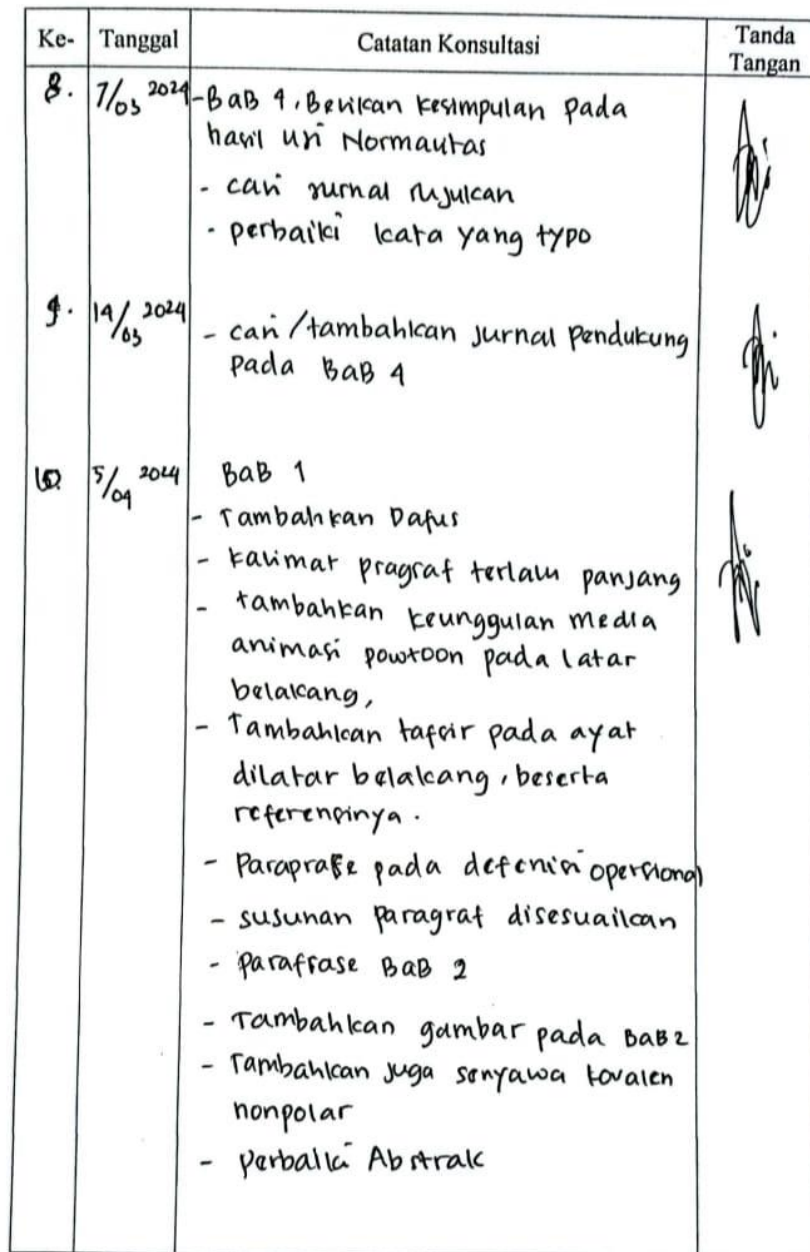 Ke- Tanggal Catatan Konsultasi Tanda Tangan
8. 7/03 2024 - BaB 4, Berikan kesimpulan pada
hasil uji Normalitas
- cari jurnal rujukan
- perbaiki kata yang typo
9. 14/03 2024 - cari/tambahkan jurnal pendukung
pada BaB 4
10. 5/04 2024 BaB 1
- Tambahkan Dafus
- kalimat pragraf terlalu panjang
- tambahkan keunggulan media
animasi powtoon pada latar
belakang,
- Tambahkan tafsir pada ayat
dilatar belakang, beserta
referensinya.
- Paraprase pada defenisi opersional
- susunan paragraf disesuaikan
- parafrase BaB 2
- Tambahkan gambar pada BaB 2
- Tambahkan juga senyawa kovalen
nonpolar
- perbaiki Abstrak